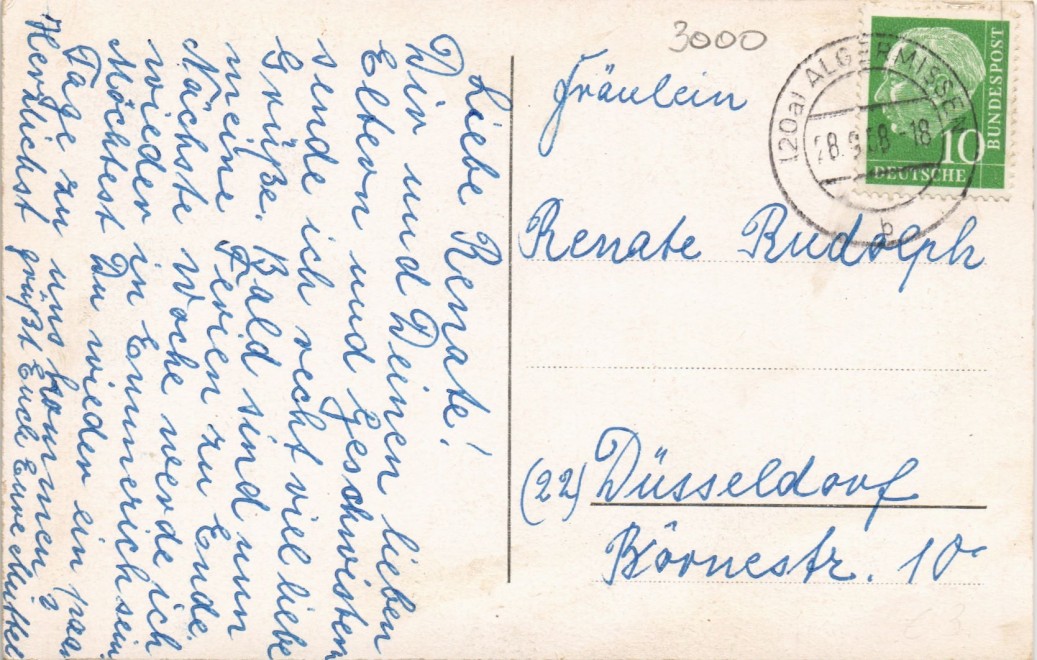 Liebe Renate!
Dir und Deinen lieben
Eltern und Geschwistern
sende ich recht viel liebe
Grüße. Bald sind nun
meine Ferien zu Ende.
Nächste Woche werde ich
wieder in Emmerich sein
Möchtest Du wieder ein paar
Tage zu uns kommen?
Herzlichst grüßt Euch Eure
3000
Fräulein
Renate Rudolph
(22) Düsseldorf
Börnestr. 10
(20a) ALGERMISSEN
28.9.58 18
b
10
DEUTSCHE
BUNDESPOST